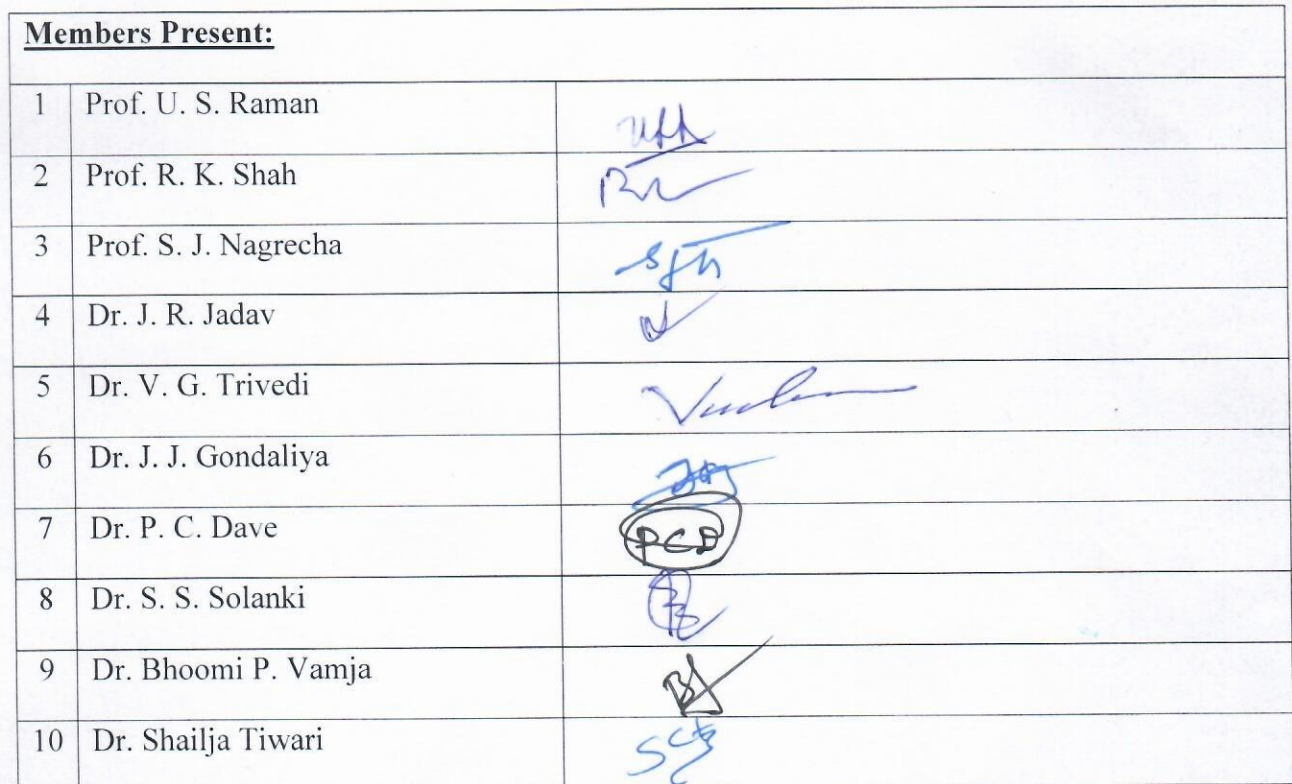 Members Present:
1 Prof. U. S. Raman
2 Prof. R. K. Shah
3 Prof. S. J. Nagrecha
4 Dr. J. R. Jadav
5 Dr. V. G. Trivedi
6 Dr. J. J. Gondaliya
7 Dr. P. C. Dave PCD
8 Dr. S. S. Solanki
9 Dr. Bhoomi P. Vamja
10 Dr. Shailja Tiwari